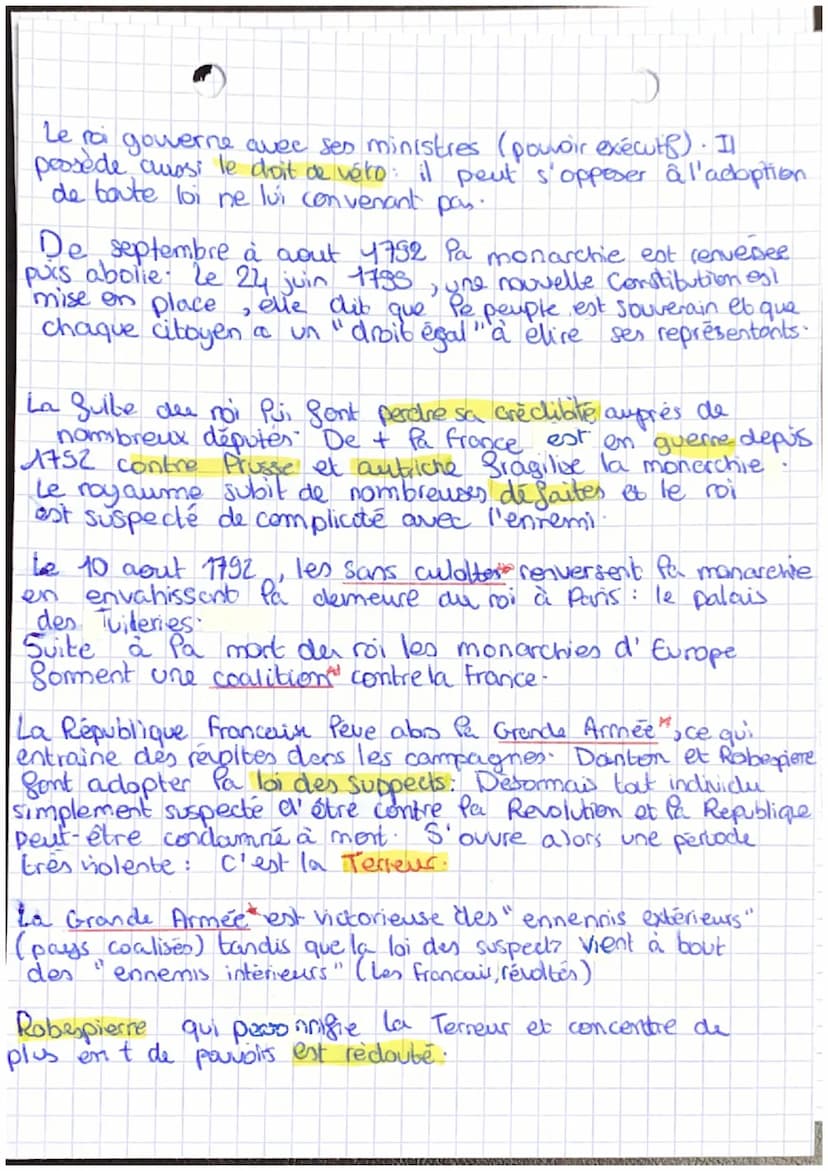 Le roi gouverne avec ses ministres (pouvoir exécutif). Il
possède aussi le droit de véto: il peut s'opposer à l'adoption
de toute loi ne lui convenant pas.
De septembre à aout 1792 la monarchie est renversée
puis abolie. Le 24 juin 1793, une nouvelle Constitution est
mise en place, elle dit que le peuple est souverain et que
chaque citoyen a un "droit égal" à élire ses représentants.
La fuite du roi lui font perdre sa crédibilité auprès de
nombreux députés. De + la france est en guerre depuis
1752 contre Prusse et autriche fragilise la monarchie.
Le royaume subit de nombreuses défaites et le roi
est suspecté de complicité avec l'ennemi.
Le 10 aout 1792, les sans culottes* renversent la monarchie
en envahissant la demeure du roi à Paris : le palais
des Tuileries.
Suite à la mort du roi les monarchies d'Europe
forment une coalition* contre la France.
La République francaise lève alors la Grande Armée*, ce qui
entraine des révoltes dans les campagnes. Danton et Robespiere
font adopter la loi des suppects: Désormais tout individu
simplement suspecté d'être contre la Revolution et la Republique
peut-être condamné à mort. S'ouvre alors une période
très violente : C'est la Terreur.
La Grande Armée* est victorieuse des "ennemis extérieurs"
(pays coalisés) tandis que la loi des suspects vient à bout
des "ennemis intérieurs" (Les francais, révoltés)
Robespierre qui personnifie la Terreur et concentre de
plus en + de pouvoirs est redouté.